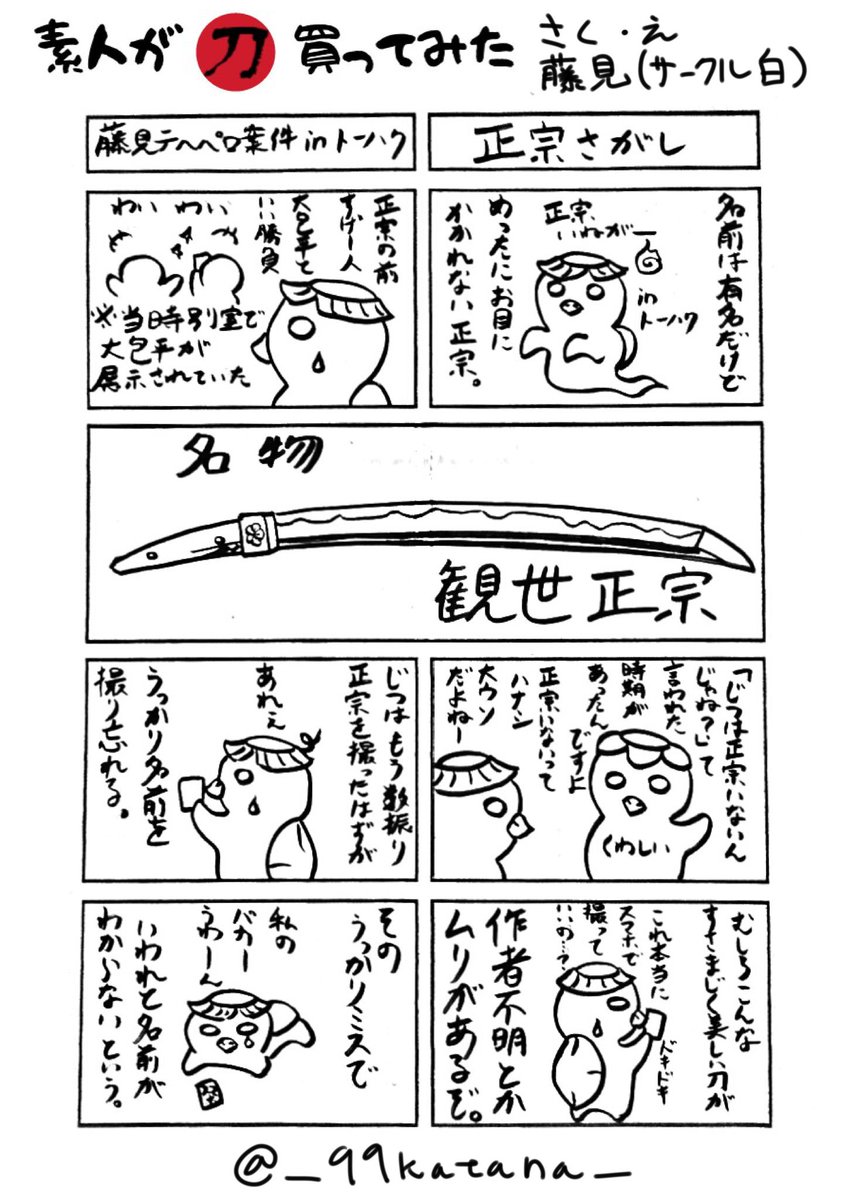 素人が刀買ってみた
さく・え
藤見(サークル白)
正宗さがし
名前は有名だけど
めったにお目に
かかれない正宗。
正宗
いねがー
in
トーハク
名物
観世正宗
「じつは正宗いないん
じゃね?」って
言われた
時期が
あったんですよ
くわしい
正宗いないって
ハナシ
大ウソ
だよねー
むしろこんな
すさまじく美しい刀が
これ本当に
スマホで
撮って
いいの…?
ドキドキ
作者不明とか
ムリがあるぞ。
藤見テヘペロ案件inトーハク
正宗の前
すげー人
大包平と
いい勝負
わい わい
※当時別室で
大包平が
展示されていた
じつはもう数振り
正宗を撮ったはずが
あれぇ
うっかり名前を
撮り忘れる。
その
うっかりミスで
私の
バカー
うわーん
いわれと名前が
わからないという。
@_99katana_